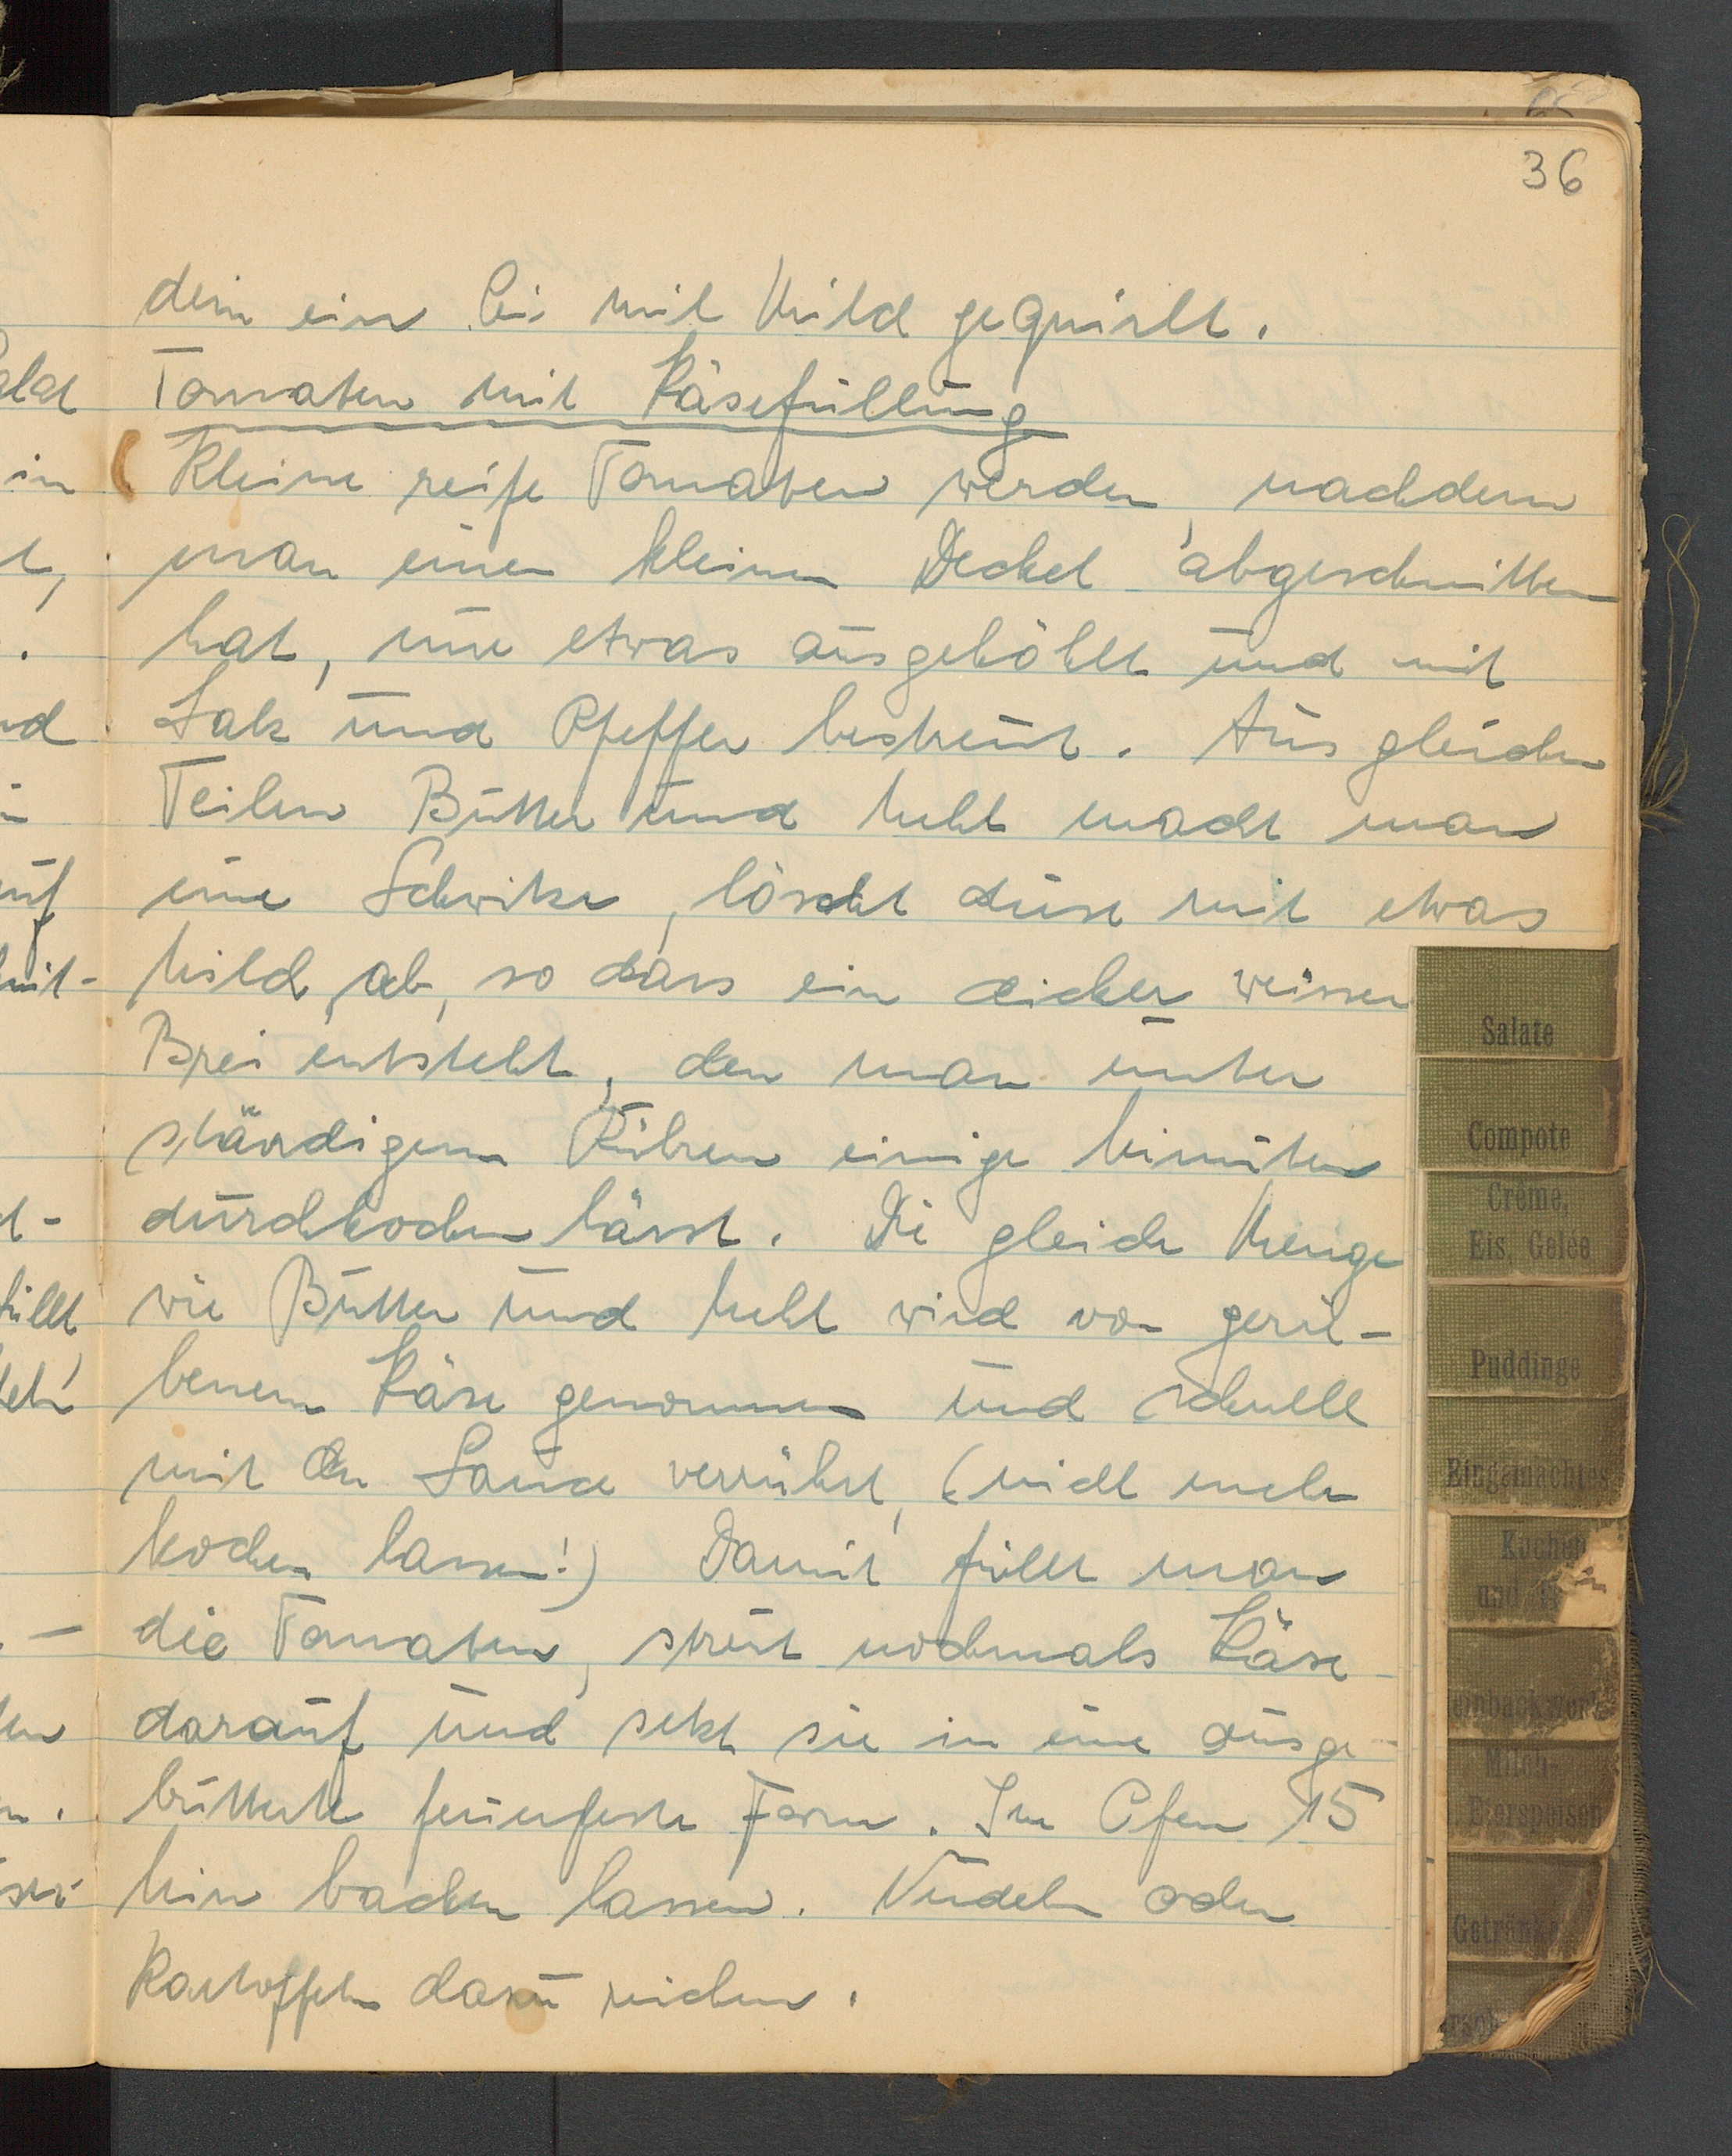 36
dem ein Ei mit Milch gequirlt.
Tomaten mit Käsefüllung
Kleine reife Tomaten werden, nachdem
man einen kleinen Deckel abgeschnitten
hat, nun etwas ausgehöhlt und mit
Salz und Pfeffer bestreut. Aus gleichen
Teilen Butter und Mehl macht man
eine Schwitze, löscht diese mit etwas
Milch ab, so dass ein dicker weisser
Brei entsteht, den man unter
ständigem Rühren einige Minuten
durchkochen lässt. Die gleiche Menge
wie Butter und Mehl wird von gerie-
benem Käse genommen und schnell
mit der Sauce verrührt, (nicht mehr
kochen lassen!) Damit füllt man
die Tomaten, streut nochmals Käse
darauf und setzt sie in eine ausge-
butterte feuerfeste Form. Im Ofen 15
Min backen lassen. Nudeln oder
Kartoffeln dazu reichen.
Salate
Compote
Crême,
Eis, Gelée
Puddinge
Eingemachtes
Kuchen
und
Milch-
Eierspeisen
Getränke